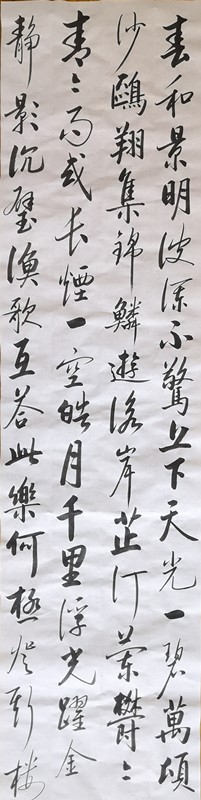 春和景明波瀾不驚上下天光一碧萬頃
沙鷗翔集錦鱗遊泳岸芷汀蘭鬱〻
青〻而或長煙一空皓月千里浮光躍金
静影沉璧漁歌互答此樂何極登斯楼